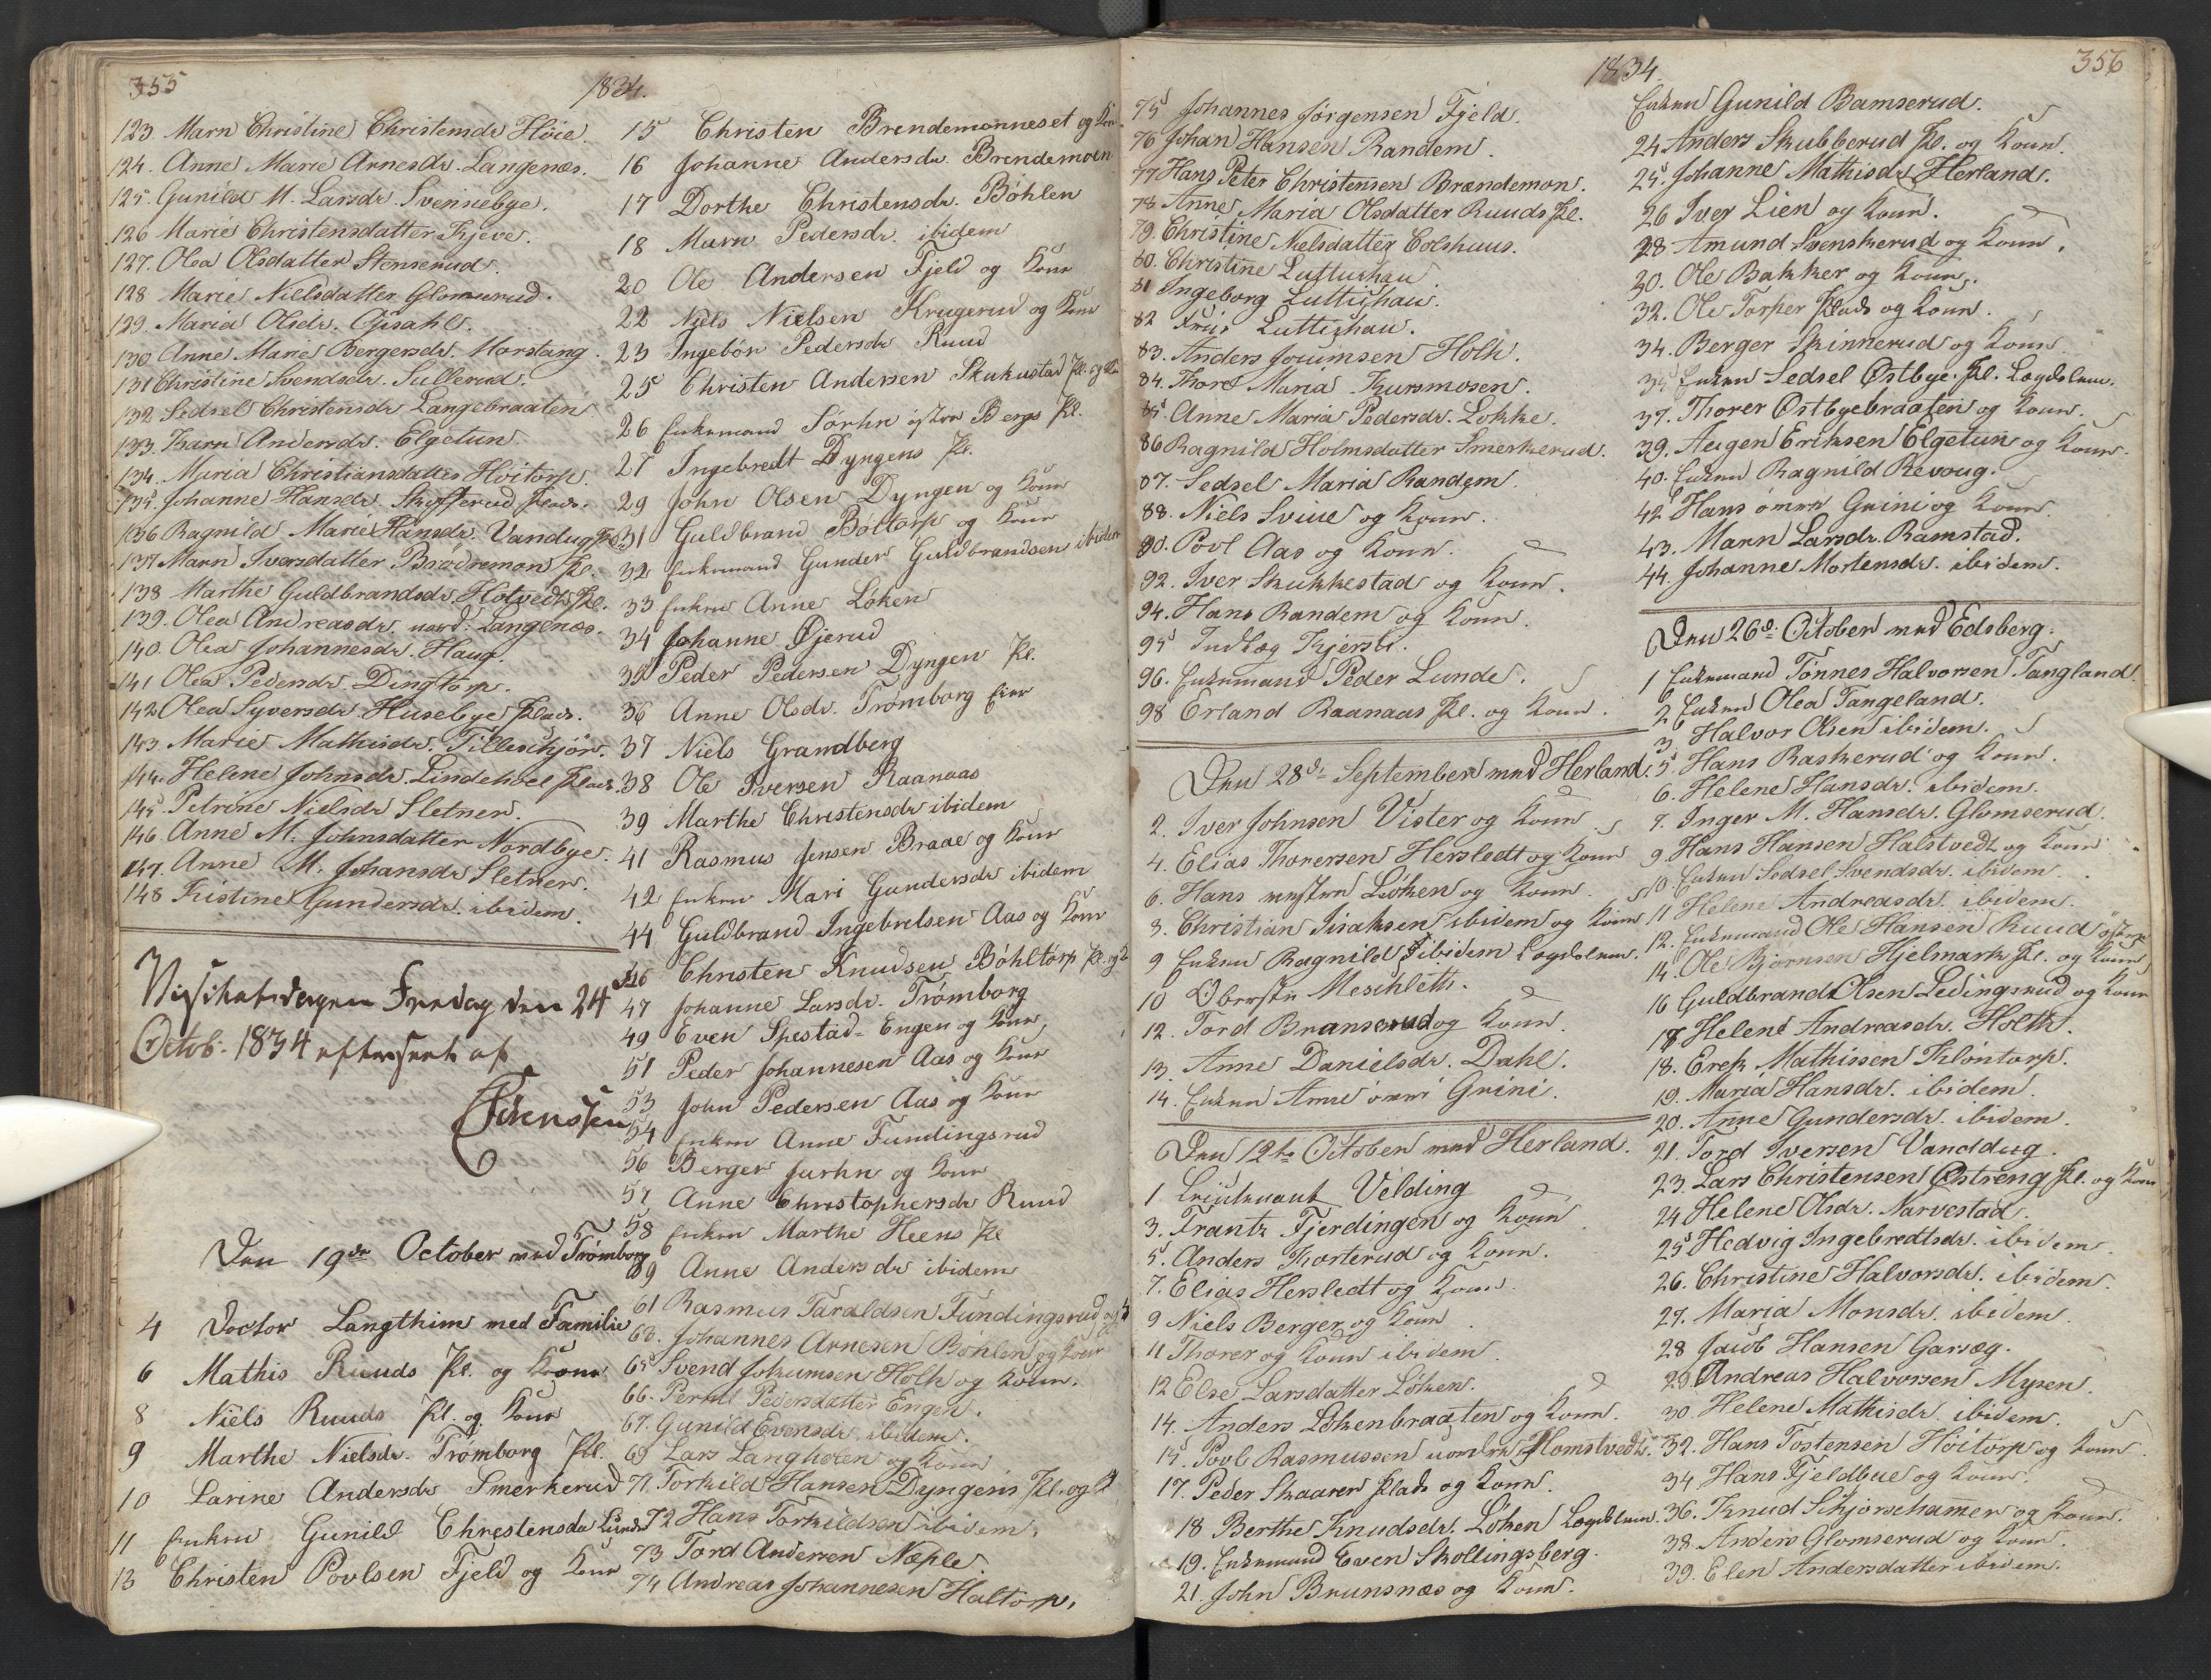 355
1834.
123 Marn Christine Christensdr Høie
124. Anne Marie Arnesdr. Langenæs.
125. Gunild M. Larsdr. Svennebye.
126 Marie Christensdatter Kjeve.
127. Olea Olsdatter Stenserud.
128 Marie Nielsdatter Glomserud.
129. Maria Olsdr. Opsahl.
130 Anne Marie Bergersdr. Morstang.
131 Christine Svendsdr. Sullerud.
132 Sidsel Christensdr Langebraaten
133. Karn Andersdr. Elgetun.
134. Maria Christiansdatter Høitorp.
135. Johanne Hansdr. Skofterud Plads.
136 Ragnild Marie Hansdr. Vandug
137 Marn Iversdatter Brødremon Pl.
138 Marthe Guldbrandsdr. Hotvedt Pl.
139. Olea Andreasdr. nord. Langenæs.
140. Olea Johannesdr. Haug.
141 Olea Pedersdr. Dingtorp.
142 Olea Syversdr. Husebye Plads.
143 Marie Mathisdr. Tilleschjør.
144. Helene Johnsdr. Lindehoel Plads.
145. Petrine Nielsdr Sletner.
146. Anne M. Johnsdatter Nordbye.
147. Anne M. Johansdr Sletner.
148 Kistine Gundersdr. ibidem.
Visitatsdagen Fredag den 24
Octob. 1834 efterseet af
Den 19de October med Trømborg
4 Doctor Langthim med Familie
6 Mathis Ruuds Pl. og Kone
8 Niels Ruuds Pl. og Kone
9 Marthe Nielsdr. Trømborg Pl.
10 Larine Andersdr Smerkerud
11 Enken Gunild Christensdr Lunde
13 Christen Povlsen Fjeld og Kone
15 Christen Brendemonneset og Kone
16 Johanne Andersdr. Brendemoen
17 Dorthe Christensdr. Bøhlen
18 Marn Pedersdr. ibidem
20 Ole Andersen Fjeld og Kone
22 Niels Nielsen Krugerud og Kone
23 Ingebor Pedersdr Ruud
25 Christen Andersen Skukustad Pl. og
26 Enkemand Sørhn østre Bergs Pl.
27 Ingebredt Dyngens Pl.
29 John Olsen Dyngen og Kone
31 Guldbrand Bøltorp og Kone
32 Enkemand Gunder Guldbrandsen ibidem
33 Enken Anne Løken
34 Johanne Øjerud
35 Peder Pedersen Dyngen Pl.
36 Anne Olsdr. Trømborg Eier
37 Niels Grandberg
38 Ole Iversen Raanaas
39 Marthe Christensdr ibidem
41 Rasmus Jensen Braae og Kone
42 Enken Mari Gundersdr ibidem
44 Guldbrand Ingebretsen Aas og Kone
46 Christen Knudsen Bøhltorp Pl. og
47 Johanne Larsdr. Trømborg
49 Even Spestad-Engen og Kone
51 Peder Johannesen Aas og Kone
53 John Pedersen Aas og Kone
54 Enken Anne Fundingsrud
56 Berger og Kone
57 Anne Christophersdr Ruud
58 Enken Marthe Heens Pl
59 Anne Andersdr ibidem
61 Rasmus Taraldsen Fundingsrud og
63. Johannes Arnesen Bøhlen og Kone
65 Svend Johumsen Holth og Kone.
66. Pernil Pedersdatter Engen.
67. Gunild Evensdr. ibidem.
69 Lars Langholen og Kone
71. Torkild Hansen Dyngens Pl. og
72 Hans Torkildsen ibidem.
73 Tord Andersen Næple.
74 Andreas Johannesen Haltorp.
1834.
356
75 Johannes Jørgensen Fjeld.
76 Johan Hansen Randem.
77 Hans Peter Christensen Brændemon.
78 Anne Maria Olsdatter Ruuds Pl.
79. Christine Nielsdatter Colshuus.
80. Christine Luttichau
81 Ingeborg Luttichau.
82 Luttichau.
83. Anders Joumsen Holth.
84. Thore Maria Kursmosen.
85. Anne Maria Pedersdr. Løkke.
86 Ragnild Holmsdatter Smerkerud.
87. Sedsel Maria Randem.
88. Niels Sviue og Kone.
90. Povl Aas og Kone.
92. Iver Skukkestad og Kone.
94. Hans Randem og Kone.
95 Indlæg Kjersti.
96. Enkemand Peder Lunde.
98 Erland Raanaas Pl. og Kone.
Den 28de September med Herland.
2. Iver Johnsen Vister og Kone
4. Elias Thorersen Hersledt og Kone
6. Hans vestre Løken og Kone.
8. Christian Isaksen ibidem og Kone
9 Enken Ragnild ibidem Lægdslem.
10 Oberste Meschlett.
12. Tord Branserud og Kone.
13. Anne Danielsdr. Dahl.
14. Enken Anne Grini.
Den 12te October med Herland.
1 Lieutenant Velding
3. Frantz Fjerdingen og Kone
5. Anders Korterud og Kone.
7. Elias Hersledt og Kone.
9 Niels Berger og Kone
11 Thorer og Kone ibidem
12 Else Larsdatter Løken.
14. Anders Løkenbraaten og Kone.
15. Povl Rasmussen nordre Homstvedt.
17. Peder Skaaren Plads og Kone.
18 Berthe Knudsdr. Løken Lægdslem.
19. Enkemand Even Skollingsberg.
21. John Brunsnæs og Kone.
Enken Gunild Bamserud.
24 Anders Skubberud Pl. og Kone.
25. Johanne Mathisdr. Herland.
26 Iver Lien og Kone.
28 Amund Svenskerud og Kone.
30. Ole Bakker og Kone.
32. Ole Torper Plads og Kone.
34. Berger Skinnerud og Kone
35 Enken Sedsel Østbye Pl. Lægdslem.
37. Thorer Østbyebraaten og Kone.
39. Augen Eriksen Elgetun og Kone.
40. Enken Ragnild Revoug.
42 Hans Grini og Kone.
43. Marn Larsdr. Ramstad.
44. Johanne Mortensdr. ibidem.
Den 26de October med Edsberg.
1 Enkemand Tønnes Halvorsen Tangland.
2 Enken Olea Tangeland.
3 Halvor Olsen ibidem.
5. Hans Raskerud og Kone.
6. Helene Hansdr. ibidem.
7. Inger M. Hansdr. Glomserud.
9. Hans Hansen Halstvedt og Kone
10 Enken Sedsel Svendsdr. ibidem.
11 Helene Andreasdr. ibidem.
12. Enkemand Ole Hansen Ruud østre
14. Ole Bjørnsen Hjelmark Pl. og Kone
16 Guldbrand Olsen Ledingsrud og Kone
17 Helene Andreasdr. Holth.
18. Erek Mathissen Kløntorp.
19. Maria Hansdr. ibidem.
20. Anne Gundersdr. ibidem.
21. Tord Iversen Vanddug.
23. Lars Christensen Østreng Pl. og Kone
24 Helene Olsdr. Narvestad.
25 Hedvig Ingebredtsdr. ibidem.
26. Christine Halvorsdr. ibidem.
27. Maria Monsdr. ibidem
28 Jacob Hansen Garseg.
29. Andreas Halvorsen Mysen.
30. Helene Mathisdr. ibidem.
32. Hans Tostensen Høitorp og Kone
34 Hans Fjeldbue og Kone.
36. Knud Skjorschamer og Kone.
38. Anders Glomserud og Kone.
39. Elen Andersdatter ibidem.